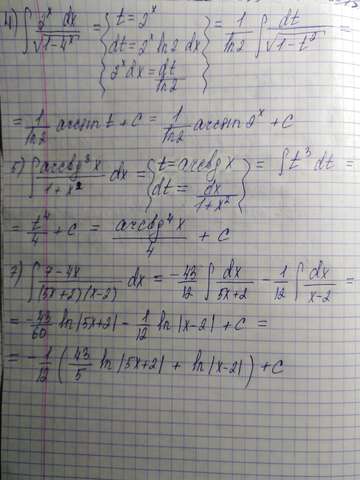 4) ∫ 2^x dx / √(1-4^x) = { t = 2^x = 1/ln2 ∫ dt / √(1-t²) =
dt = 2^x ln2 dx
2^x dx = dt/ln2 }
= 1/ln2 arcsin t + C = 1/ln2 arcsin 2^x + C
5) ∫ arctg³x / (1+x²) dx = { t = arctg x = ∫ t³ dt =
dt = dx / (1+x²) }
= t⁴/4 + C = arctg⁴x / 4 + C
7) ∫ (7-4x) / ((5x+2)(x-2)) dx = -43/12 ∫ dx / (5x+2) - 1/12 ∫ dx / (x-2) =
= -43/60 ln|5x+2| - 1/12 ln|x-2| + C =
= -1/12 (43/5 ln|5x+2| + ln|x-2|) + C